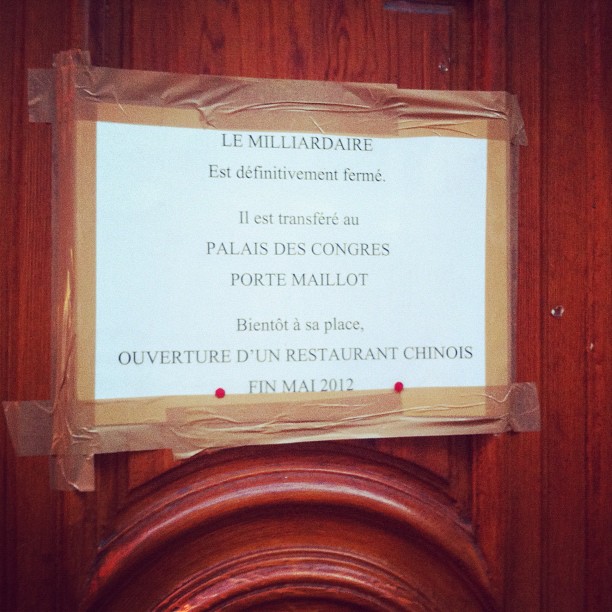 LE MILLIARDAIRE
Est définitivement fermé.
Il est transféré au
PALAIS DES CONGRES
PORTE MAILLOT
Bientôt à sa place,
OUVERTURE D'UN RESTAURANT CHINOIS
FIN MAI 2012